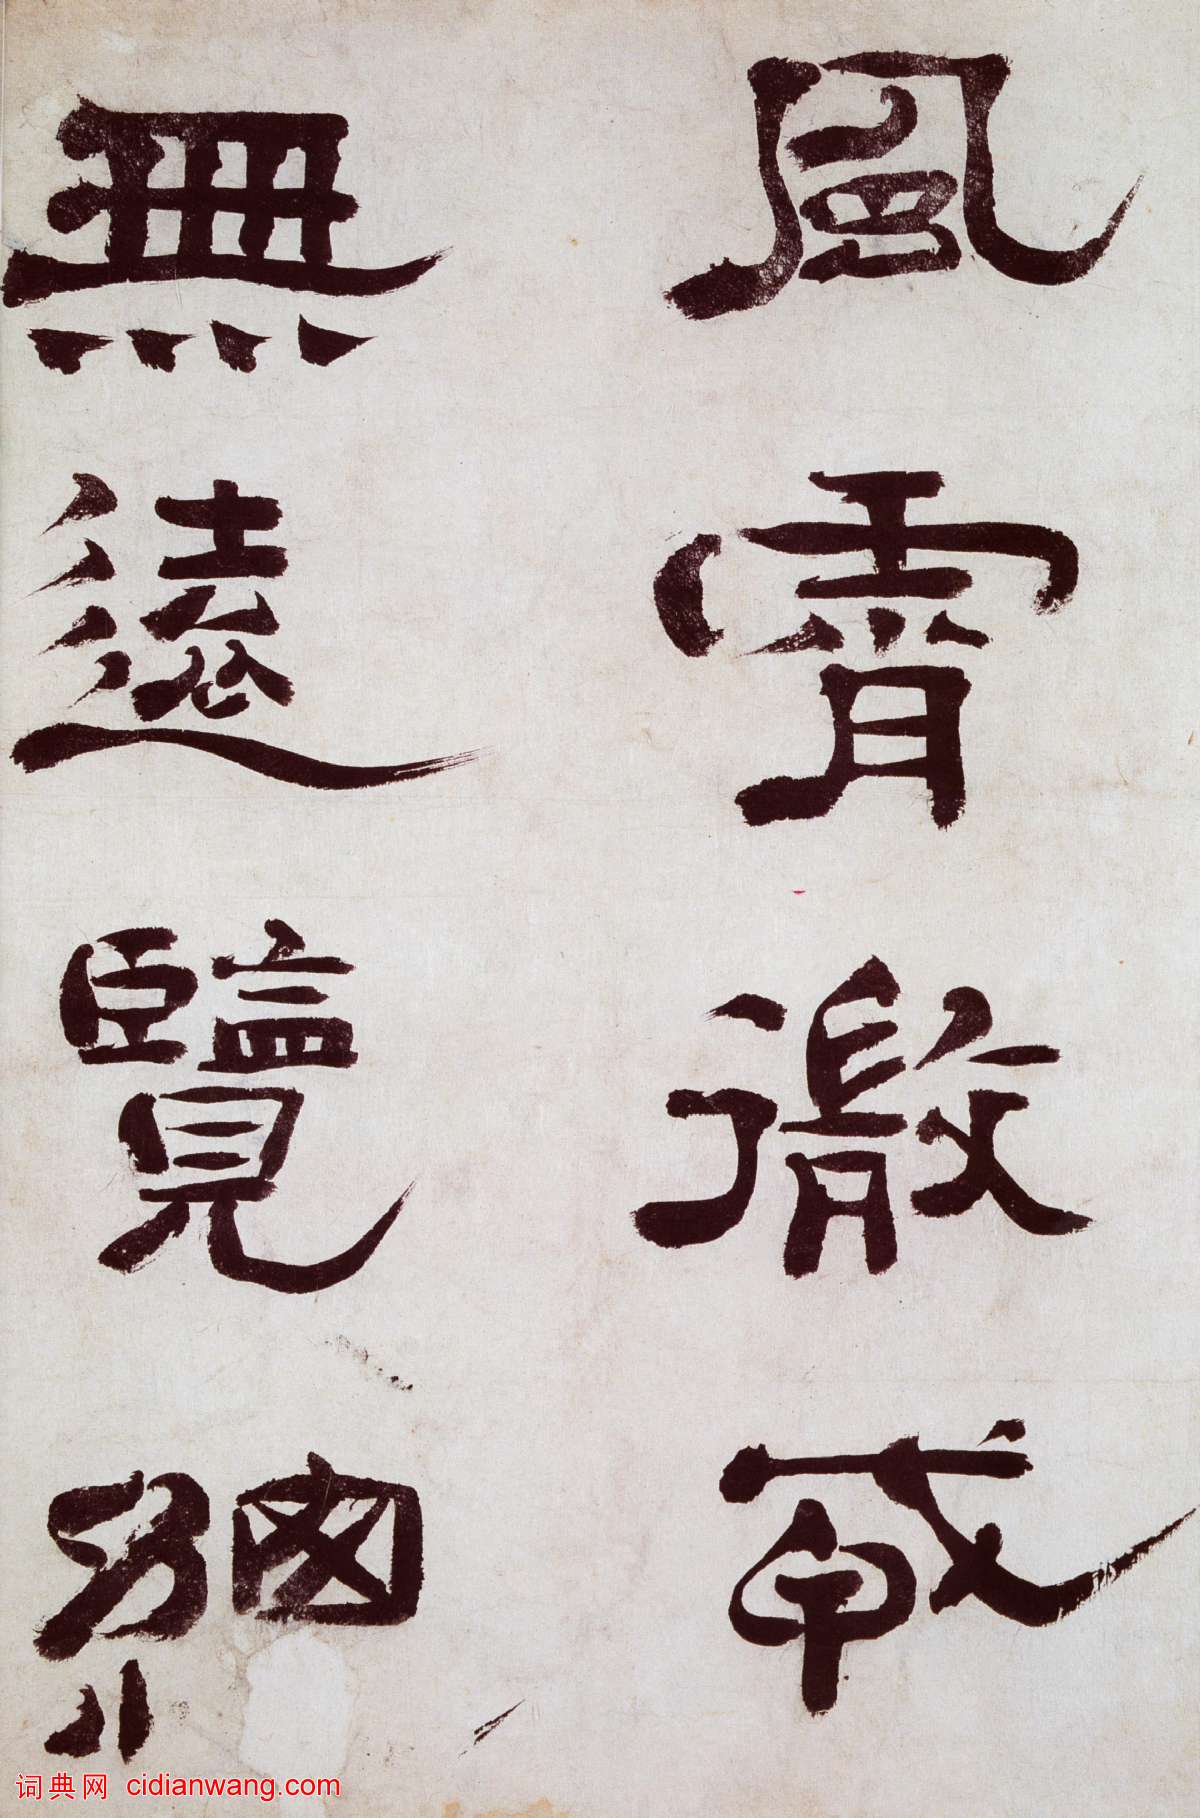 風霄徹
無遠覽細
词典网 cidianwang.com